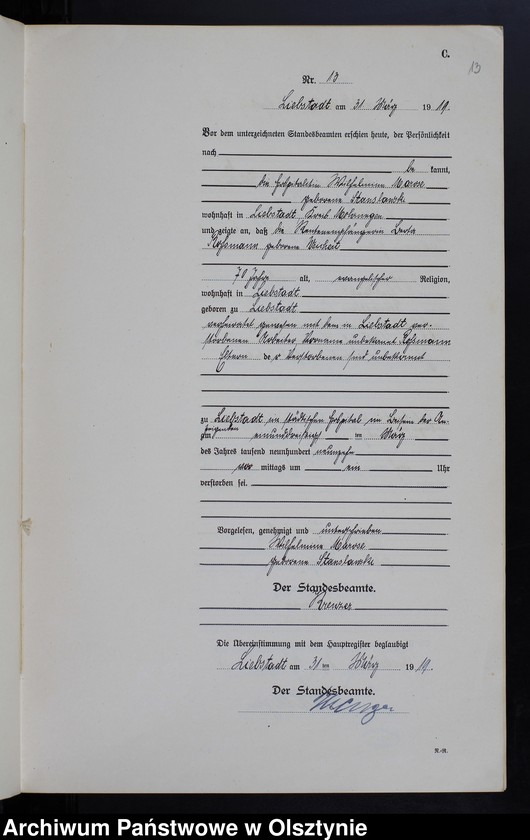 C.
13
Nr. 13
Liebstadt am 31 März 1919.
Vor dem unterzeichneten Standesbeamten erschien heute, der Persönlichkeit
nach
be kannt,
die Hospitalitin Wilhelmine Marose
geborene Stanslawski
wohnhaft in Liebstadt Kreis Mohrungen
und zeigte an, daß die Rentenempfängerin
Roßmann geborene
70 Jahre alt, evangelischer Religion,
wohnhaft in Liebstadt
geboren zu Liebstadt
verheiratet gewesen mit dem in Liebstadt ver-
storbenen Arbeiter, Vorname unbekannt Roßmann
Eltern der Verstorbenen sind unbekannt
zu Liebstadt im städtischen Hospital im Beisein der An-
zeigenden
am einunddreißigsten März
des Jahres tausend neunhundert neunzehn
vor mittags um ein Uhr
verstorben sei.
Vorgelesen, genehmigt und unterschrieben
Wilhelmine Marose
geborene Stanslawski
Der Standesbeamte.
Die Übereinstimmung mit dem Hauptregister beglaubigt
Liebstadt am 31 ten März 1919.
Der Standesbeamte.
R.-R.
Archiwum Państwowe w Olsztynie